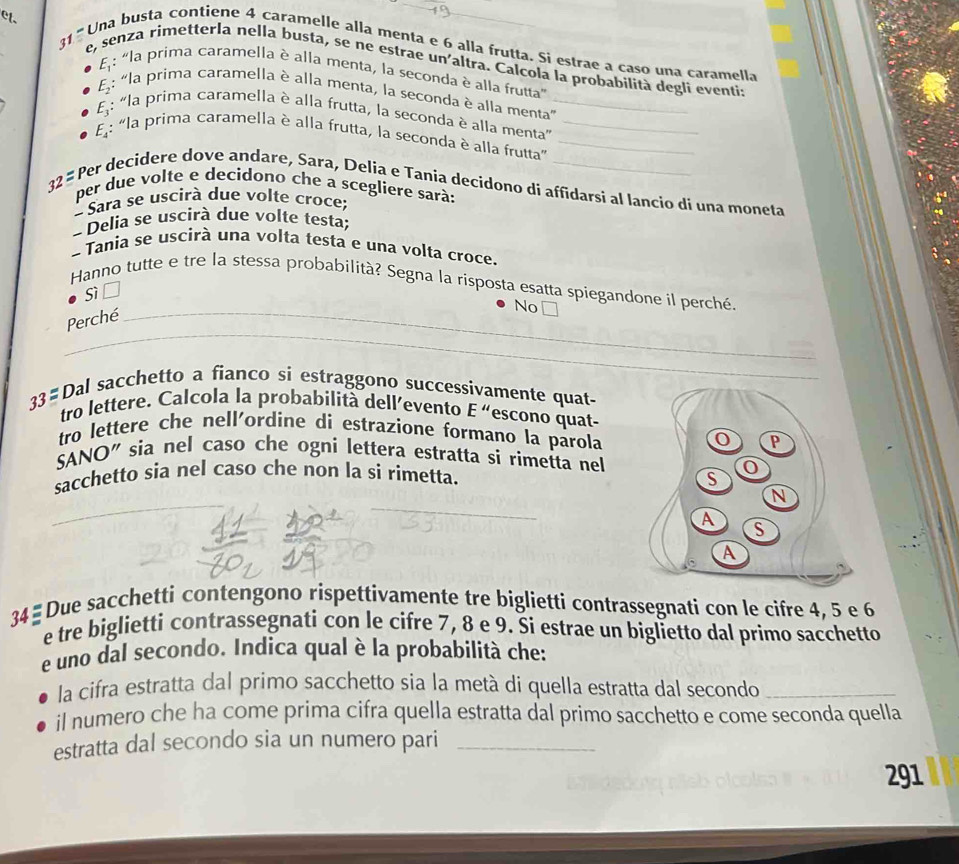 et.
19
31 Una busta contiene 4 caramelle alla menta e 6 alla frutta. Si estrae a caso una caramella
e, senza rimetterla nella busta, se ne estrae un'altra. Calcola la probabilità degli eventi:
• E₁: "la prima caramella è alla menta, la seconda è alla frutta"
• E₂: "la prima caramella è alla menta, la seconda è alla menta"
• E₃: "la prima caramella è alla frutta, la seconda è alla menta"
• E₄: "la prima caramella è alla frutta, la seconda è alla frutta"
32 Per decidere dove andare, Sara, Delia e Tania decidono di affidarsi al lancio di una moneta
per due volte e decidono che a scegliere sarà:
– Sara se uscirà due volte croce;
– Delia se uscirà due volte testa;
– Tania se uscirà una volta testa e una volta croce.
Hanno tutte e tre la stessa probabilità? Segna la risposta esatta spiegandone il perché.
• Sì □ • No □
Perché
33 Dal sacchetto a fianco si estraggono successivamente quat-
tro lettere. Calcola la probabilità dell'evento E "escono quat-
tro lettere che nell'ordine di estrazione formano la parola
SANO" sia nel caso che ogni lettera estratta si rimetta nel
sacchetto sia nel caso che non la si rimetta.
O P
O
S
N
A
S
A
34 Due sacchetti contengono rispettivamente tre biglietti contrassegnati con le cifre 4, 5 e 6
e tre biglietti contrassegnati con le cifre 7, 8 e 9. Si estrae un biglietto dal primo sacchetto
e uno dal secondo. Indica qual è la probabilità che:
• la cifra estratta dal primo sacchetto sia la metà di quella estratta dal secondo
• il numero che ha come prima cifra quella estratta dal primo sacchetto e come seconda quella
estratta dal secondo sia un numero pari
291